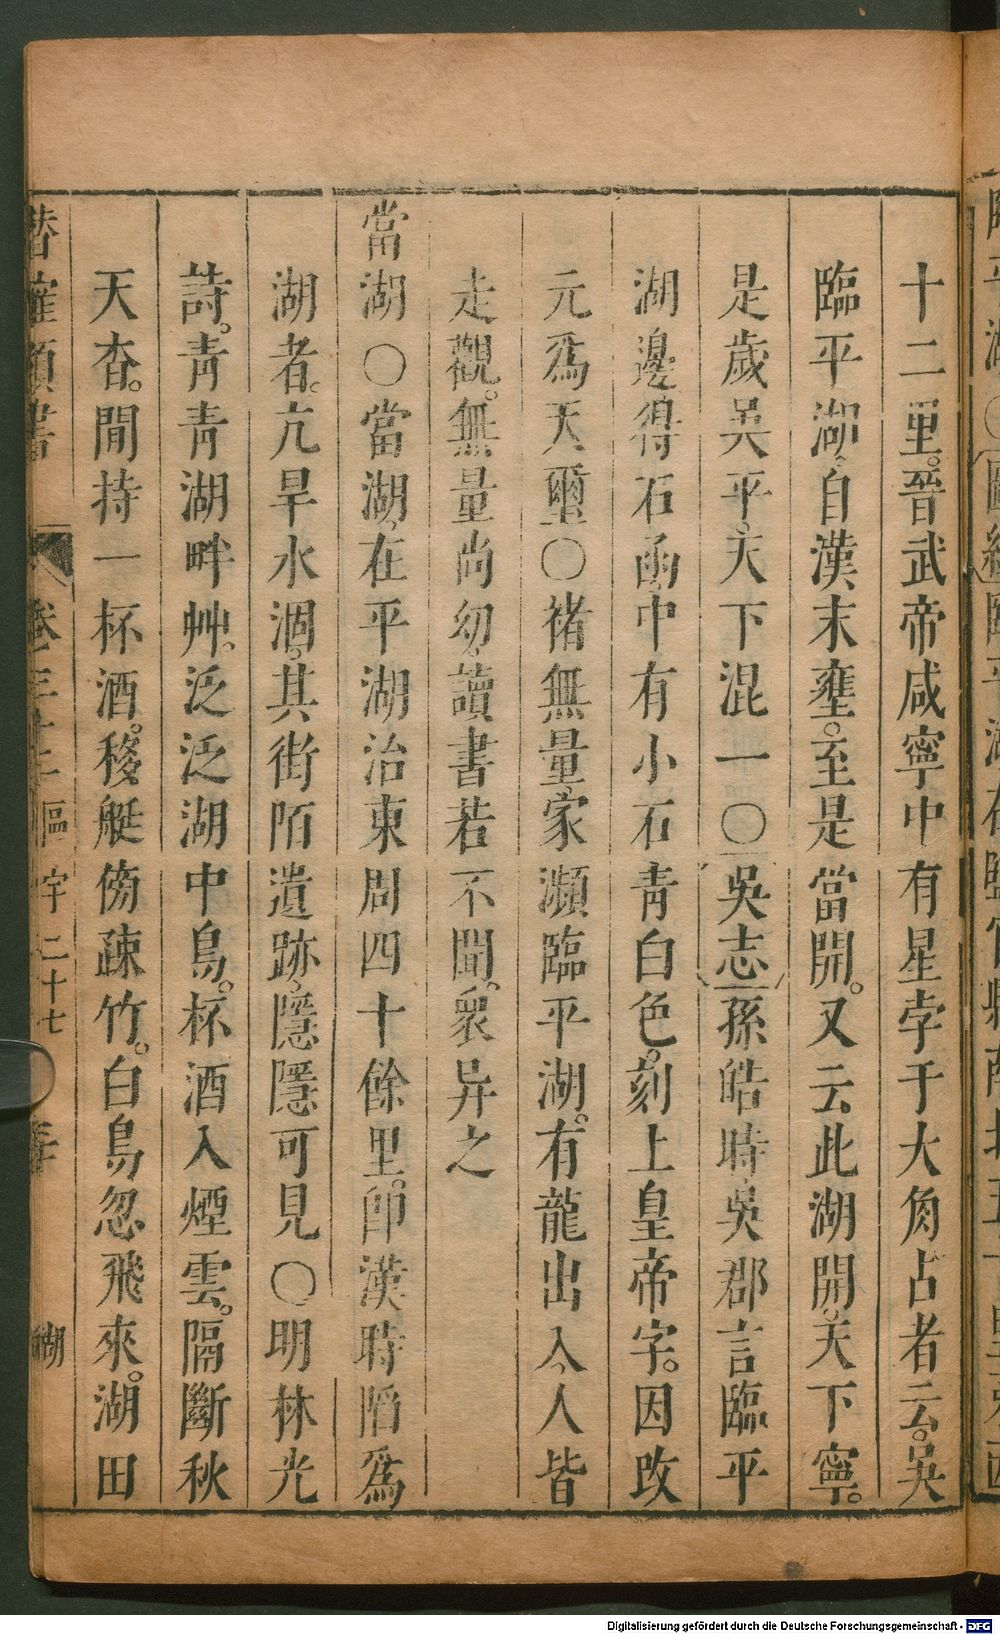 十二里。晉武帝咸寧中有星孛于大角占者云。吳
臨平湖、自漢末壅。至是當開。又云此湖開、天下寧。
是歲吳平。天下混一〇吳志孫皓時、吳郡言臨平
湖邊得石函、中有小石、青白色。刻上皇帝字。因改
元爲天璽〇褚無量、家瀕臨平湖。有龍出入、人皆
走觀。無量尚幼、讀書若不聞。衆异之
當湖〇當湖、在平湖治東周四十餘里。卽漢時陷爲
湖者。亢旱水涸、其街陌遺跡、隱隱可見〇明林光
詩。靑靑湖畔艸。泛泛湖中鳥。杯酒入煙雲。隔斷秋
天杳。閒持一杯酒。移艇傍疎竹。白鳥忽飛來。湖田
卷三十三 區字二十七 湖
Digitalisierung gefördert durch die Deutsche Forschungsgemeinschaft - DFG